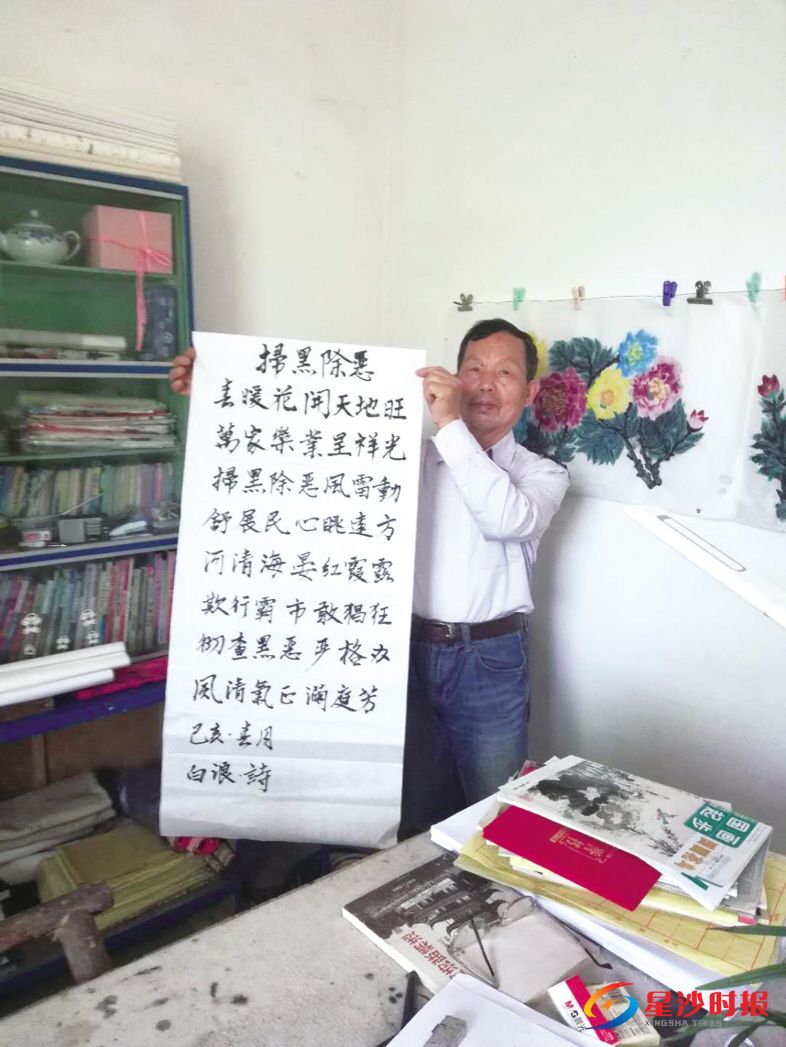 掃黑除恶
春暖花開天地旺
萬家樂業呈祥光
掃黑除恶風雷動
舒展民心眺遠方
河清海晏紅霞露
欺行霸市敢猖狂
彻查黑恶严格办
風清氣正滿庭芳
己亥·春月
白浪·詩
星沙时报
XINGSHA TIMES